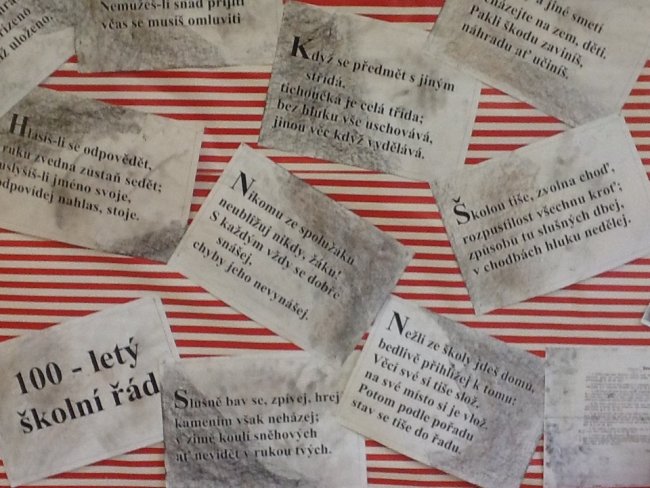 uloženo.
Nemůžeš-li snad přijíti
včas se musíš omluviti
Když se předmět s jiným
střídá,
tichoučká je celá třída;
bez hluku vše uschovává,
jinou věc když vydělává.
a jiné smetí
házejte na zem, děti.
Pakli škodu zaviníš,
náhradu ať učiníš.
Hlásíš-li se odpovědět,
ruku zvedna zůstaň sedět;
uslyšíš-li jméno svoje,
odpovídej nahlas, stoje.
Nikomu ze spolužáků
neubližuj nikdy, žáku!
S každým vždy se dobře
snášej,
chyby jeho nevynášej.
Školou tiše, zvolna choď,
rozpustilost všechnu kroť;
způsobů tu slušných dbej,
v chodbách hluku nedělej.
100 - letý
školní řád
Slušně bav se, zpívej, hrej
kamením však neházej;
v zimě koulí sněhových
ať nevidět v rukou tvých.
Nežli ze školy jdeš domů,
bedlivě přihlížej k tomu:
Věci své si tiše slož,
na své místo si je vlož.
Potom podle pořadu
stav se tiše do řadu.